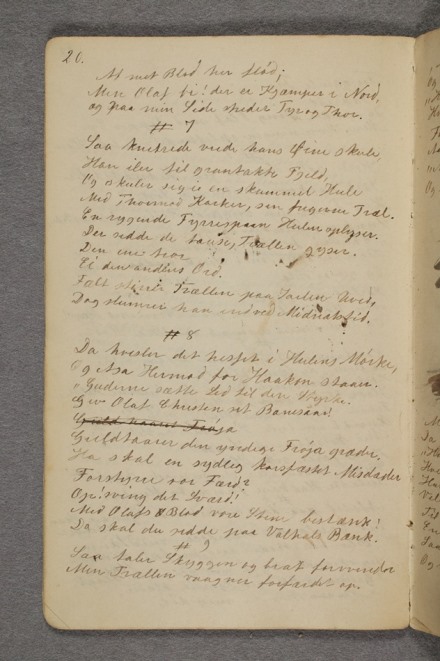 26.
At met Blod her flød;
Men Olaf bi! der er Kjæmper i Nord,
og paa min Side strider Tyr og Thor.
# 7
Saa knurrede vrede hans Øine skule,
Han iler til grantakte Fjeld,
Og skuler sig i en skummel Hule
Med Thormod Karker, sin Træl.
En rygende Fyrrespaan Hulen oplyser.
Der sidde de tause, Trællen gyser.
Den ene
Ei den andens Ord.
Fælt stirrer Trællen paa Jarlen
Dog slumrer han ind ved Midnatstid.
# 8
Da hvisler det hæst i Hulens Mørke,
Og Hermod for Haakon staaer.
Guderne sætte Lid til din Styrke.
Giv Olaf Christen sit Banesaar!
Guld Frøja
Guldtaarer den yndige Frøja græder.
Ha skal en sydlig korsfæstet Misdæder
Forstyrre vor Færd?
Op! sving det Sværd!
Med Olafs Blod vore Stene bestænk!
Da skal du sidde paa Valhals Bænk.
# 9
Saa taler Skyggen og brat forsvinder
Men Trællen vaagner forfærdet op.